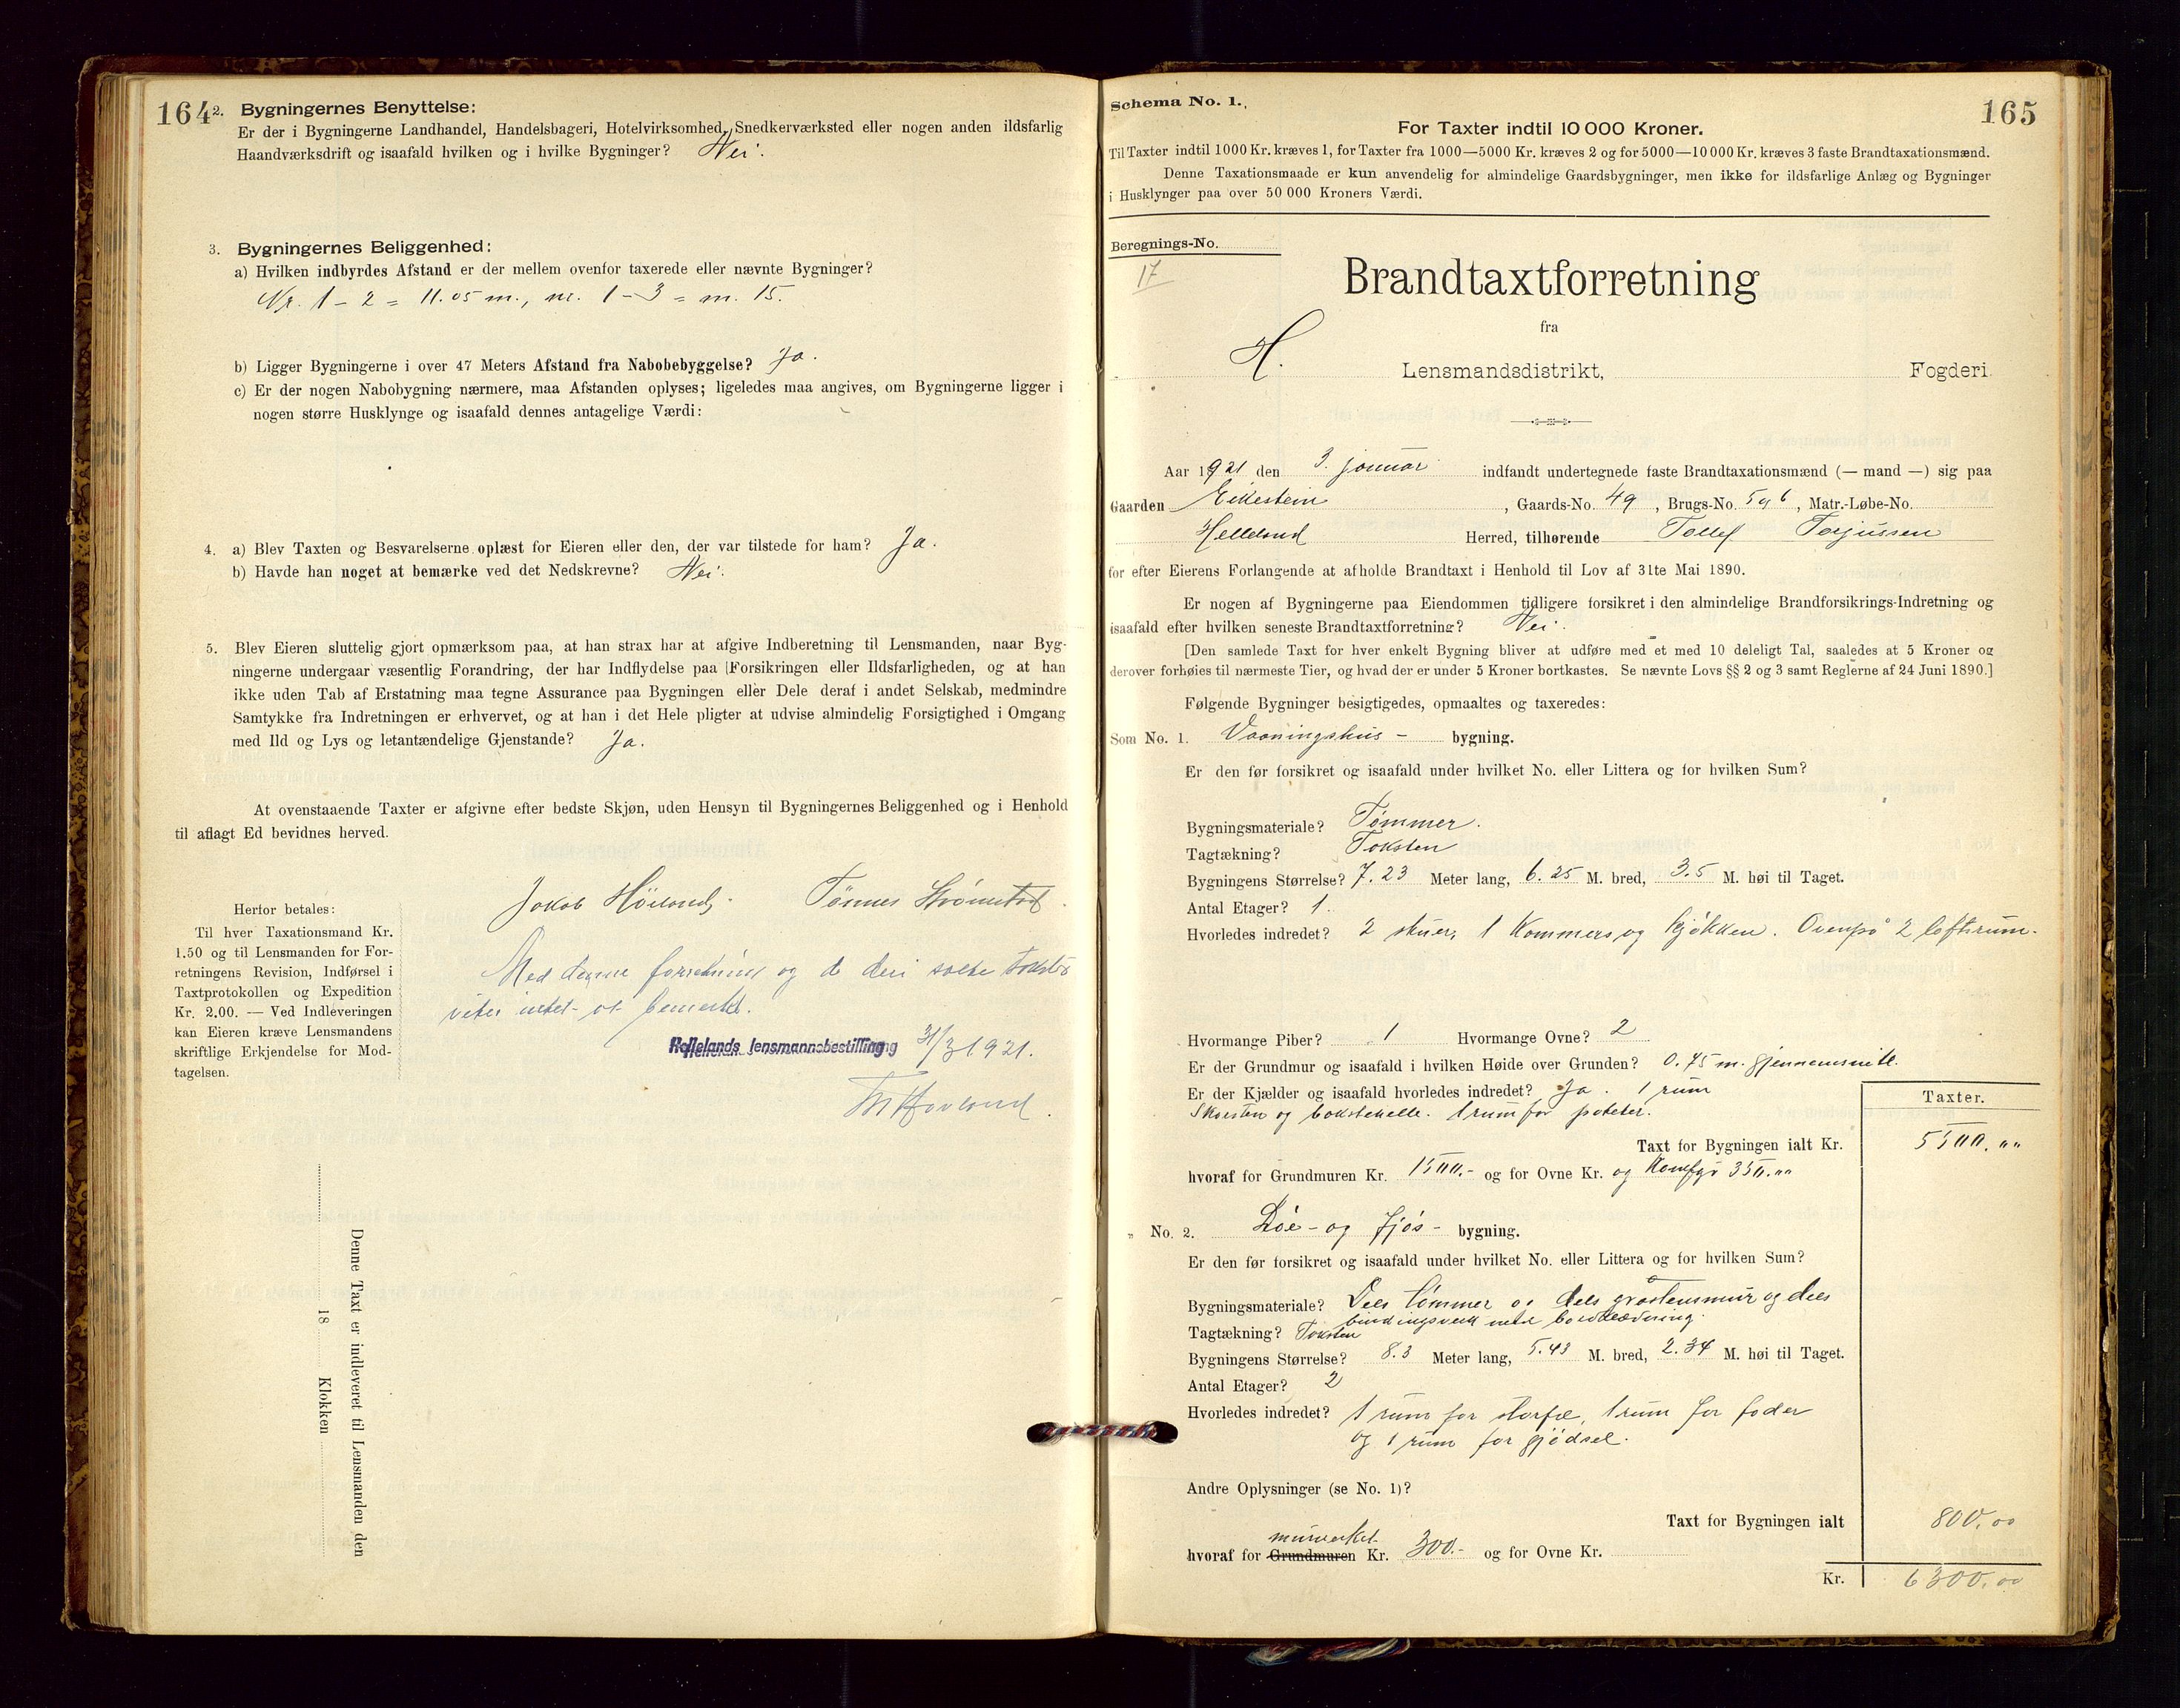 164
2. Bygningernes Benyttelse:
Er der i Bygningerne Landhandel, Handelsbageri, Hotelvirksomhed, Snedkerværksted eller nogen anden ildsfarlig
Haandværksdrift og isaafald hvilken og i hvilke Bygninger? Nei.
3. Bygningernes Beliggenhed:
a) Hvilken indbyrdes Afstand er der mellem ovenfor taxerede eller nævnte Bygninger?
Nr. 1 - 2 = 11.05 m., nr. 1 - 3 = m. 15.
b) Ligger Bygningerne i over 47 Meters Afstand fra Nabobebyggelse? Ja.
c) Er der nogen Nabobygning nærmere, maa Afstanden oplyses; ligeledes maa angives, om Bygningerne ligger i
nogen større Husklynge og isaafald dennes antagelige Værdi:
4. a) Blev Taxten og Besvarelserne oplæst for Eieren eller den, der var tilstede for ham? Ja.
b) Havde han noget at bemærke ved det Nedskrevne? Nei.
5. Blev Eieren sluttelig gjort opmærksom paa, at han strax har at afgive Indberetning til Lensmanden, naar Byg-
ningerne undergaar væsentlig Forandring, der har Indflydelse paa Forsikringen eller Ildsfarligheden, og at han
ikke uden Tab af Erstatning maa tegne Assurance paa Bygningen eller Dele deraf i andet Selskab, medmindre
Samtykke fra Indretningen er erhvervet, og at han i det Hele pligter at udvise almindelig Forsigtighed i Omgang
med Ild og Lys og letantændelige Gjenstande? Ja.
At ovenstaaende Taxter er afgivne efter bedste Skjøn, uden Hensyn til Bygningernes Beliggenhed og i Henhold
til aflagt Ed bevidnes herved.
Jakob Höiland. Tönnes Strömstad.
Herfor betales:
Til hver Taxationsmand Kr.
1.50 og til Lensmanden for For-
retningens Revision, Indførsel i
Taxtprotokollen og Expedition
Kr. 2.00. — Ved Indleveringen
kan Eieren kræve Lensmandens
skriftlige Erkjendelse for Mod-
tagelsen.
Med denne forretning og de deri satte takster
vites intet at bemerke.
Hellelands lensmannsbestilling 31/3 1921.
Denne Taxt er indleveret til Lensmanden den
18 Klokken
Schema No. 1.
165
For Taxter indtil 10 000 Kroner.
Til Taxter indtil 1000 Kr. kræves 1, for Taxter fra 1000—5000 Kr. kræves 2 og for 5000—10 000 Kr. kræves 3 faste Brandtaxationsmænd.
Denne Taxationsmaade er kun anvendelig for almindelige Gaardsbygninger, men ikke for ildsfarlige Anlæg og Bygninger
i Husklynger paa over 50 000 Kroners Værdi.
Beregnings-No.
17
Brandtaxtforretning
fra
H. Lensmandsdistrikt, Fogderi.
Aar 1921 den 3. januar indfandt undertegnede faste Brandtaxationsmænd (— mand —) sig paa
Gaarden Eikestein, Gaards-No. 49, Brugs-No. 5 og 6, Matr.-Løbe-No.
Helleland Herred, tilhørende Tollef Torjussen
for efter Eierens Forlangende at afholde Brandtaxt i Henhold til Lov af 31te Mai 1890.
Er nogen af Bygningerne paa Eiendommen tidligere forsikret i den almindelige Brandforsikrings-Indretning og
isaafald efter hvilken seneste Brandtaxtforretning? Nei.
[Den samlede Taxt for hver enkelt Bygning bliver at udføre med et med 10 deleligt Tal, saaledes at 5 Kroner og
derover forhøies til nærmeste Tier, og hvad der er under 5 Kroner bortkastes. Se nævnte Lovs §§ 2 og 3 samt Reglerne af 24 Juni 1890.]
Følgende Bygninger besigtigedes, opmaaltes og taxeredes:
Som No. 1. Vaaningshus - bygning.
Er den før forsikret og isaafald under hvilket No. eller Littera og for hvilken Sum?
Bygningsmateriale? Tömmer.
Tagtækning? Taksten
Bygningens Størrelse? 7.23 Meter lang, 6.25 M. bred, 3.5 M. høi til Taget.
Antal Etager? 1.
Hvorledes indredet? 2 stuer, 1 Kammers og kjökken. Ovenpå 2 loftsrum.
Hvormange Piber? 1 Hvormange Ovne? 2
Er der Grundmur og isaafald i hvilken Høide over Grunden? 0.75 m. gjennemsnitl.
Er der Kjælder og isaafald hvorledes indredet? Ja. 1 rum
1 rum for poteter.
Taxter.
Taxt for Bygningen ialt Kr. 5500.00
hvoraf for Grundmuren Kr. 1500.- og for Ovne Kr. og Komfyr 350.00
„ No. 2. Löe - og fjös - bygning.
Er den før forsikret og isaafald under hvilket No. eller Littera og for hvilken Sum?
Bygningsmateriale? Dels tömmer og dels gråstensmur og dels
bindingsverk med bordklædning.
Tagtækning? Taksten
Bygningens Størrelse? 8.3 Meter lang, 5.43 M. bred, 2.34 M. høi til Taget.
Antal Etager? 2
Hvorledes indredet? 1 rum for storfe, 1 rum for foder
og 1 rum for gjödsel.
Andre Oplysninger (se No. 1)?
Taxt for Bygningen ialt 800.00
murverket
hvoraf for Grundmuren Kr. 300.- og for Ovne Kr.
Kr. 6300.00